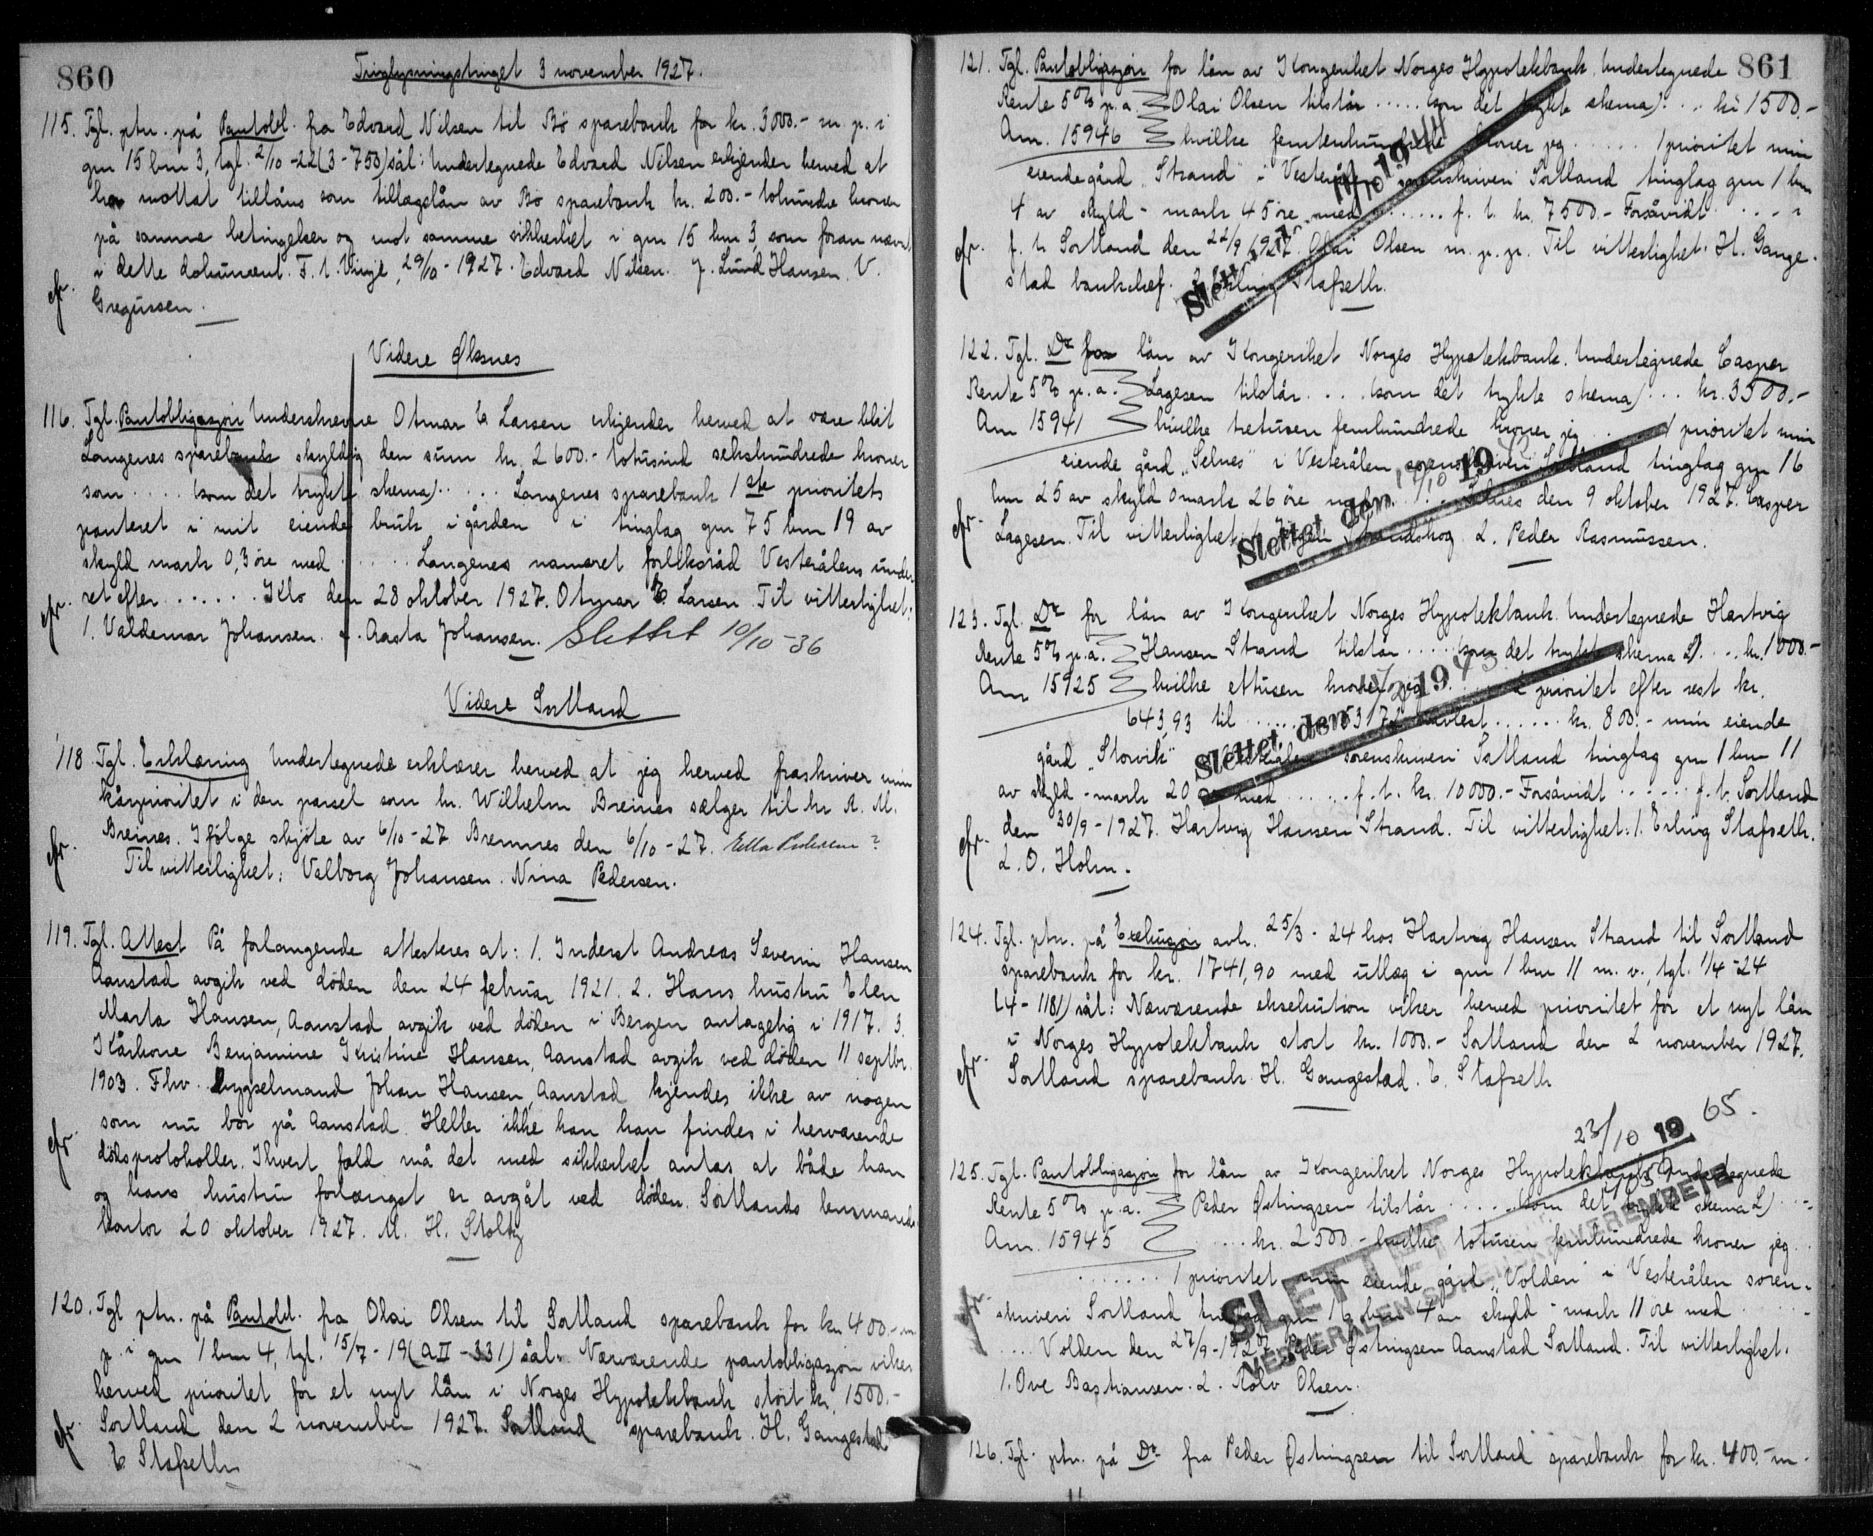 860
Tinglysningstinget 3 november 1927.
115. Tgl. ptn. på Pantobl. fra Edvard Nilsen til Bø sparebank for kr. 3000.- m. p. i
gnr 15 bnr 3, tgl. 2/10-22 (3-750) sål: Undertegnede Edvard Nilsen erkjender herved at
ha mottat tillåns som tillægslån av Bø sparebank kr. 200.- tohundre kroner
på samme betingelser og mot samme sikkerhet i gnr 15 bnr 3, som foran nævnt
i dette dokument. F. t. Vinje, 29/10-1927. Edvard Nilsen. J. Lund Hansen. V.
Gregussen.
Videre Øksnes
116. Tgl. Pantobligasjon Underskrevne Otmar E. Larsen erkjender herved at være blit
Langenes sparebank skyldig den sum kr. 2600.- totusind sekshundrede kroner
som .... (som det trykte skema) .... Langenes sparebank 1ste prioritets
panteret i mit eiende bruk i gården i tinglag gnr 75 bnr 19 av
skyld mark 0,3 øre med ...... Langenes namsret forliksråd Vesterålens under
ret efter ...... Klo den 28 oktober 1927. Otmar E. Larsen. Til vitterlighet:
1. Valdemar Johansen. 2. Aasta Johansen. Slettet 10/10-36
Videre Sortland
118 Tgl. Erklæring Undertegnede erklærer herved at jeg herved fraskriver min
kårprioritet i den parsel som hr. Wilhelm Breines sælger til hr A. M.
Breines. Ifølge skjøte av 6/10-27 Bremnes den 6/10-27.
Til vitterlighet: Valborg Johansen. Nina Pedersen.
119. Tgl. Attest På forlangende attesteres at: 1. Inderst Andreas Severin Hansen
Aanstad avgik ved døden den 24 februar 1921. 2. Hans hustru Elen
Marta Hansen, Aanstad avgik ved døden i Bergen antagelig i 1917. 3.
Kårkone Benjamine Kristine Hansen, Aanstad avgik ved døden 11 septbr.
1903. Fhv. bygselmand Johan Hansen, Aanstad kjendes ikke av nogen
som nu bor på Aanstad. Heller ikke kan han findes i herværende
dødsprotokoller. I hvert fald må det med sikkerhet antas at både han
og hans hustru forlængst er avgåt ved døden. Sortlands lensmands
kontor 20 oktober 1927. M. H. Stoltz
120. Tgl ptn. på Pantobl. fra Olai Olsen til Sortland sparebank for kr 400.- m
p. i gnr 1 bnr 4, tgl. 15/7-19 (A II-331) sål: Nærværende pantobligasjon viker
herved prioritet for et nyt lån i Norges Hypotekbank stort kr. 1500.-
Sortland den 2 november 1927. Sortland sparebank. H. Gangestad
E Stafseth
861
121. Tgl. Pantobligasjon for lån av Kongeriket Norges Hypotekbank. Undertegnede
Rente 5% p.a. Olai Olsen tilstår ..... (som det trykte skema) ... kr 1500.-
Am. 15946 hvilke femtenhundrede kroner jeg ..... 1 prioritet min
eiende gård "Strand" i Vesterålen sorenskriveri Sortland tinglag gnr 1 bnr
4 av skyld - mark 45 øre med ....... f. t. kr. 7500.- Forsåvidt .....
f. t. Sortland den 22/9 1927. Olai Olsen m. p. p. Til vitterlighet: H. Gange-
stad banksjef. 2. Erling Stafseth.
Slettet 11/10 1944
122. Tgl. Do for lån av Kongeriket Norges Hypotekbank. Undertegnede Casper
Rente 5% p.a. Lagesen tilstår .... (som det trykte skema) ... kr. 3500.-
Am 15941 hvilke tretusen femhundrede kroner jeg ..... 1 prioritet min
eiende gård "Selnes" i Vesterålen sorenskriveri Sortland tinglag gnr 16
bnr 25 av skyld 0 mark 26 øre med ..... Selnes den 9 oktober 1927. Casper
Lagesen. Til vitterlighet: 2. Peder Rasmussen.
Slettet den 19
123. Tgl. Do for lån av Kongeriket Norges Hypotekbank. Undertegnede Hartvig
Rente 5% p.a. Hansen Strand tilstår ..... (som det trykte skema 2) ... kr. 1000.-
Am 15925 hvilke ettusen kroner jeg ..... 2 prioritet efter rest kr.
643,93 til ..... ..... kr. 800.- min eiende
gård "Storvik" i Vesterålen sorenskriveri Sortland tinglag gnr 1 bnr 11
av skyld - mark 20 øre med ...... f. t. kr. 10000.- Forsåvidt ...... f. t. Sortland
den 30/9-1927. Hartvig Hansen Strand. Til vitterlighet: 1. Erling Stafseth.
2. O. Holm.
Slettet den 1943
124. Tgl. ptn. på Exekusjon avh. 25/3-24 hos Hartvig Hansen Strand til Sortland
sparebank for kr. 1741,90 med utlæg i gnr 1 bnr 11 m. v., tgl. 1/4-24
(4-1181) sål: Nærværende eksekution viker herved prioritet for et nyt lån
i Norges Hypotekbank stort kr. 1000.- Sortland den 2 november 1927.
Sortland sparebank. H. Gangestad. E. Stafseth
23/10 1965.
125. Tgl. Pantobligasjon for lån av Kongeriket Norges Hypotekbank Undertegnede
Rente 5% p.a. Peder Østingsen tilstår ..... (som det trykte skema 2) ...
Am. 15945 .... kr. 2500.- hvilke totusen femhundrede kroner jeg ..
....... 1 prioritet min eiende gård "Volden" i Vesterålen soren-
skriveri Sortland tinglag gnr 16 bnr 4 av skyld - mark 11 øre med ....
.... Volden den 27/9-1927. Peder Østingsen Aanstad Sortland. Til vitterlighet:
1. Ove Bastiansen. 2. Rolv Olsen.
SLETTET
VESTERÅLEN SORENSKRIVEREMBETE
126. Tgl. ptn. på Do fra Peder Østingsen til Sortland sparebank for kr. 400.- m.